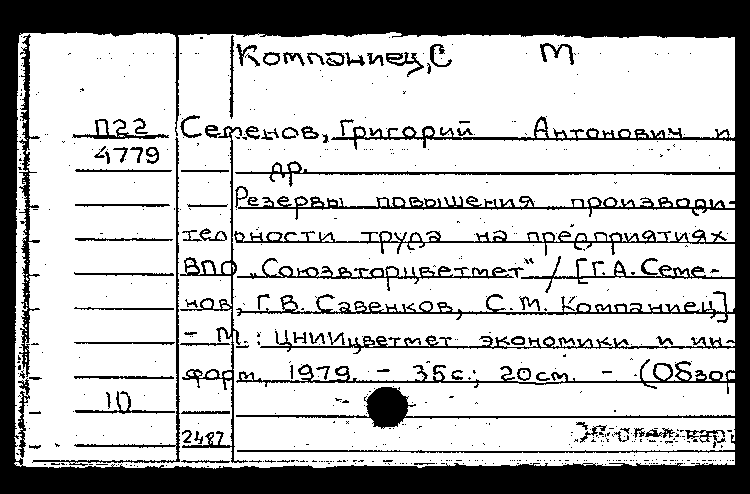 Компаниец, С М
П22 Семенов, Григорий Антонович и
4779 др.
Резервы повышения производи-
тельности труда на предприятиях
ВПО „Союзвторцветмет" / [Г.А. Семе-
нов, Г.В. Савенков, С.М. Компаниец].
- М.: ЦНИИцветмет экономики и ин-
форм., 1979. - 35с.; 20см. - (Обзор
10
2487